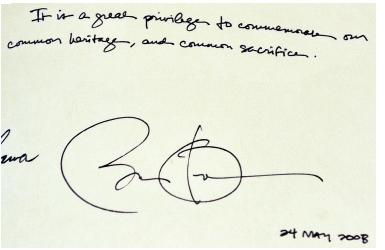 It is a great privilege to commemorate our
common heritage, and common sacrifice.
24 MAY 2008